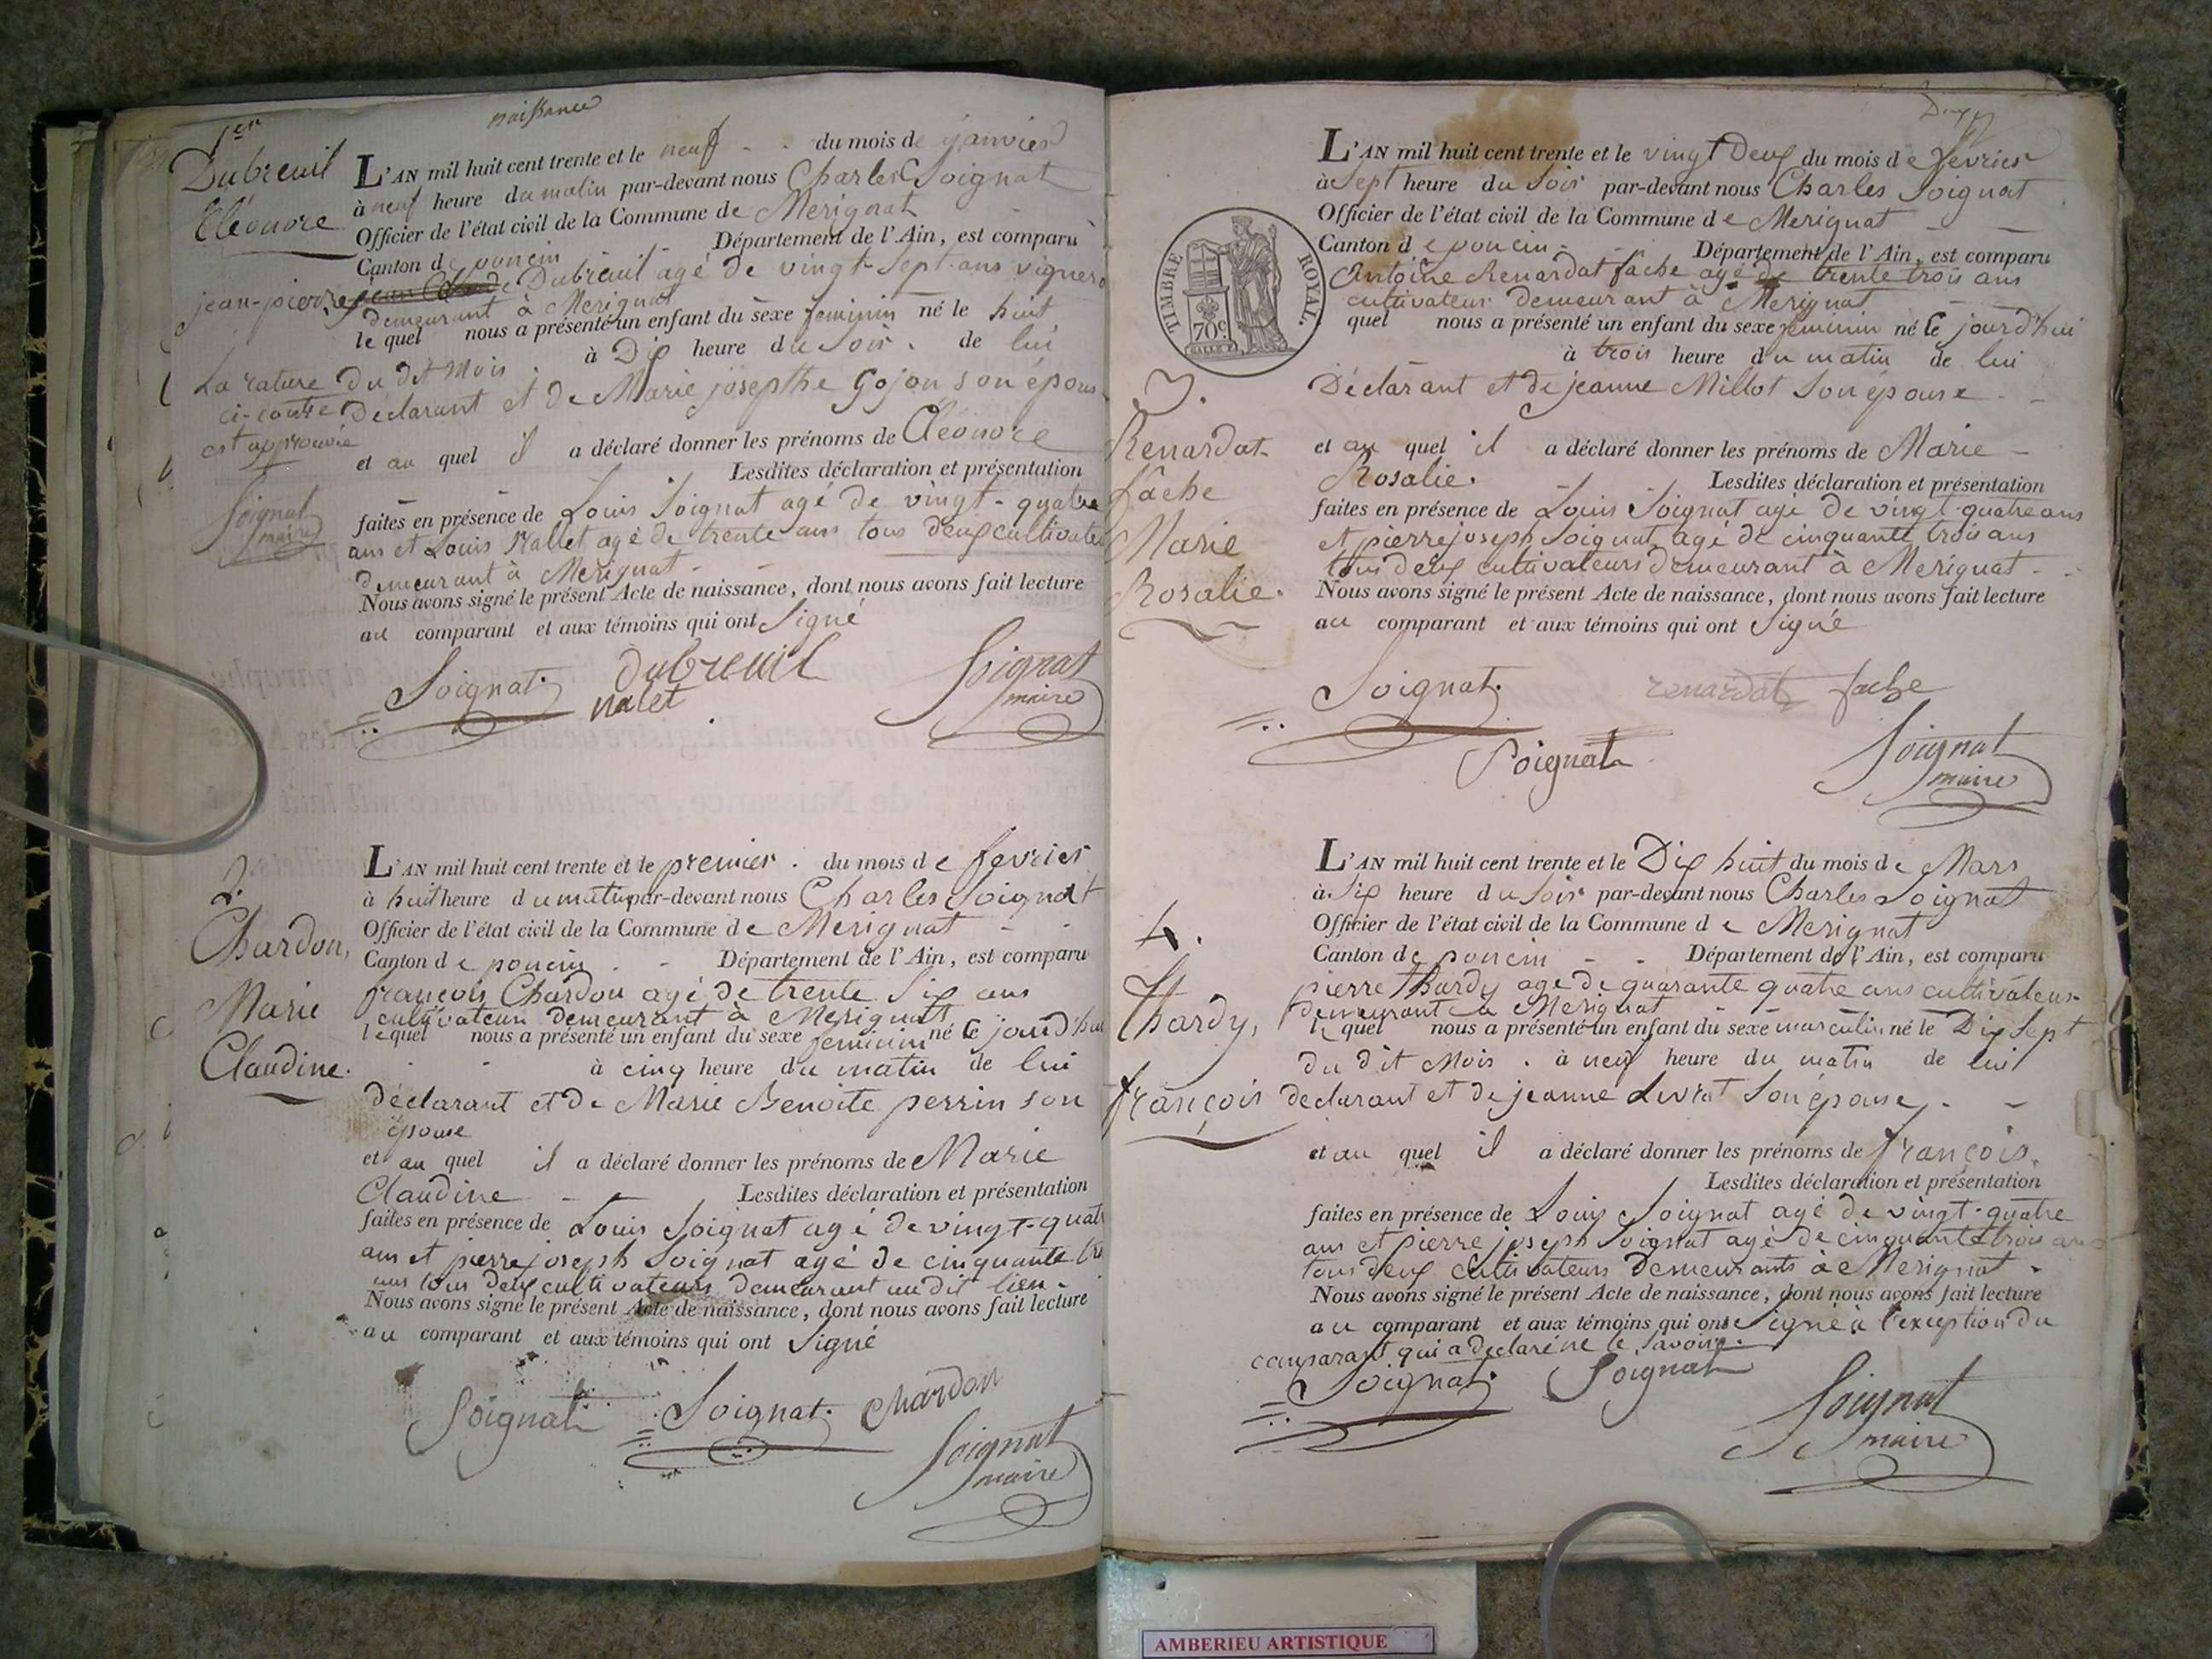 naissance
1er
Dubreuil
Eléonore
L'AN mil huit cent trente et le neuf du mois de janvier
à neuf heure du matin par-devant nous Charles Soignat
Officier de l'état civil de la Commune de Merignat
Canton de poncin Département de l'Ain, est comparu
jean-pierre Dubreuil agé de vingt-sept ans vigneron
demeurant à Merignat
le quel nous a présenté un enfant du sexe feminin né le huit
du dit mois à Dix heure du Soir de lui
La rature
ci-contre
est approuvée
Soignat
maire
Déclarant et de Marie josepthe Gojon son épouse
et au quel il a déclaré donner les prénoms de Eléonore
Lesdites déclaration et présentation
faites en présence de Louis Soignat agé de vingt-quatre
ans et Louis Nallet agé de trente ans tous deux cultivateurs
demeurant à Merignat
Nous avons signé le présent Acte de naissance, dont nous avons fait lecture
au comparant et aux témoins qui ont Signé
Soignat dubreuil Soignat
nalet maire
2.
Chardon,
Marie
Claudine.
L'AN mil huit cent trente et le premier du mois de fevrier
à huit heure du matin par-devant nous Charles Soignat
Officier de l'état civil de la Commune de Merignat
Canton de poncin Département de l'Ain, est comparu
françois Chardon agé de trente Six ans
cultivateur demeurant à Merignat
lequel nous a présenté un enfant du sexe feminin né le jourd'hui
à cinq heure du matin de lui
déclarant et de Marie Benoite perrin son
épouse
et au quel il a déclaré donner les prénoms de Marie
Claudine Lesdites déclaration et présentation
faites en présence de Louis Soignat agé de vingt-quatre
ans et pierre joseph Soignat agé de cinquante trois
ans tous deux cultivateurs demeurant au dit lieu
Nous avons signé le présent Acte de naissance, dont nous avons fait lecture
au comparant et aux témoins qui ont Signé
Soignat Soignat chardon
Soignat
maire
Deux
TIMBRE ROYAL.
70c.
3.
Renardat
fâche
Marie
Rosalie.
L'AN mil huit cent trente et le vingt Deux du mois de fevrier
à Sept heure du Soir par-devant nous Charles Soignat
Officier de l'état civil de la Commune de Merignat
Canton de poncin Département de l'Ain, est comparu
Antoine Renardat fâche agé de trente trois ans
cultivateur demeurant à Merignat
quel nous a présenté un enfant du sexe feminin né le jourd'hui
à trois heure du matin de lui
Déclarant et de jeanne Millot Son épouse
et au quel il a déclaré donner les prénoms de Marie
Rosalie. Lesdites déclaration et présentation
faites en présence de Louis Soignat agé de vingt-quatre ans
et pierre joseph Soignat agé de cinquante trois ans
tous deux cultivateurs demeurant à Merignat
Nous avons signé le présent Acte de naissance, dont nous avons fait lecture
au comparant et aux témoins qui ont Signé
Soignat. renardat fache
Soignat Soignat
maire
4.
Thardy,
françois
L'AN mil huit cent trente et le Dix huit du mois de Mars
à Six heure du Soir par-devant nous Charles Soignat
Officier de l'état civil de la Commune de Merignat
Canton de poncin Département de l'Ain, est comparu
pierre Thardy agé de quarante quatre ans cultivateur
demeurant à Merignat
le quel nous a présenté un enfant du sexe masculin né le Dix Sept
du dit Mois. à neuf heure du matin de lui
declarant et de jeanne Livrat Son épouse
et au quel il a déclaré donner les prénoms de françois.
Lesdites déclaration et présentation
faites en présence de Louis Soignat agé de vingt-quatre
ans et pierre joseph Soignat agé de cinquante trois ans
tous deux cultivateurs demeurants à Merignat
Nous avons signé le présent Acte de naissance, dont nous avons fait lecture
au comparant et aux témoins qui ont Signé à l'exception du
comparant qui a declaré ne le Savoir.
Soignat. Soignat
Soignat
maire
AMBERIEU ARTISTIQUE